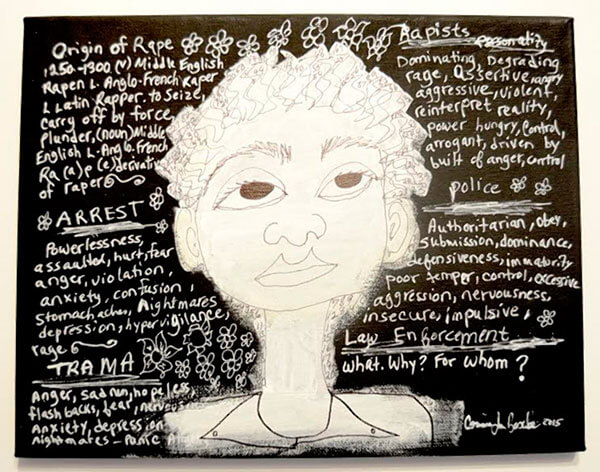 Origin of Rape
1250-1300 (v) Middle English
Rapen L. Anglo-French Raper
L Latin Rapper. to Seize,
Carry off by force,
Plunder, (noun) Middle
English L-Anglo-French
Ra (a) p (e) derivative
of raper
ARREST
Powerlessness
assaulted, hurt, fear
anger, violation,
anxiety, confusion,
stomach aches, Nightmares
depression, hypervigilance,
rage
TRAMA
Anger, sadness, hopeless,
flashbacks, fear, nervous
Anxiety, depression
nightmares - Panic
Rapists Personality
Dominating, Degrading
rage, Assertive, angry
aggressive, violent,
reinterpret reality,
power hungry, Control,
arrogant, driven by
built of anger, control
police
Authoritarian, obey,
Submission, dominance,
defensiveness, immaturity
poor temper, control, excessive
aggression, nervousness,
insecure, impulsive,
Law Enforcement
What. Why? For whom?
2015